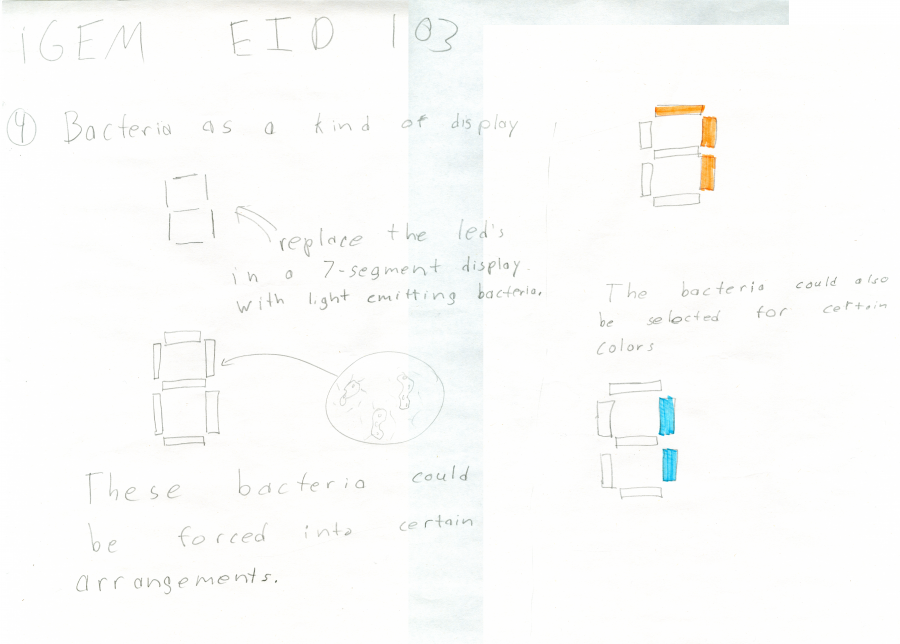 iGEM EID 103
④ Bacteria as a kind of display
replace the led's
in a 7-segment display.
with light emitting bacteria.
These bacteria could
be forced into certain
arrangements.
The bacteria could also
be selected for certain
colors